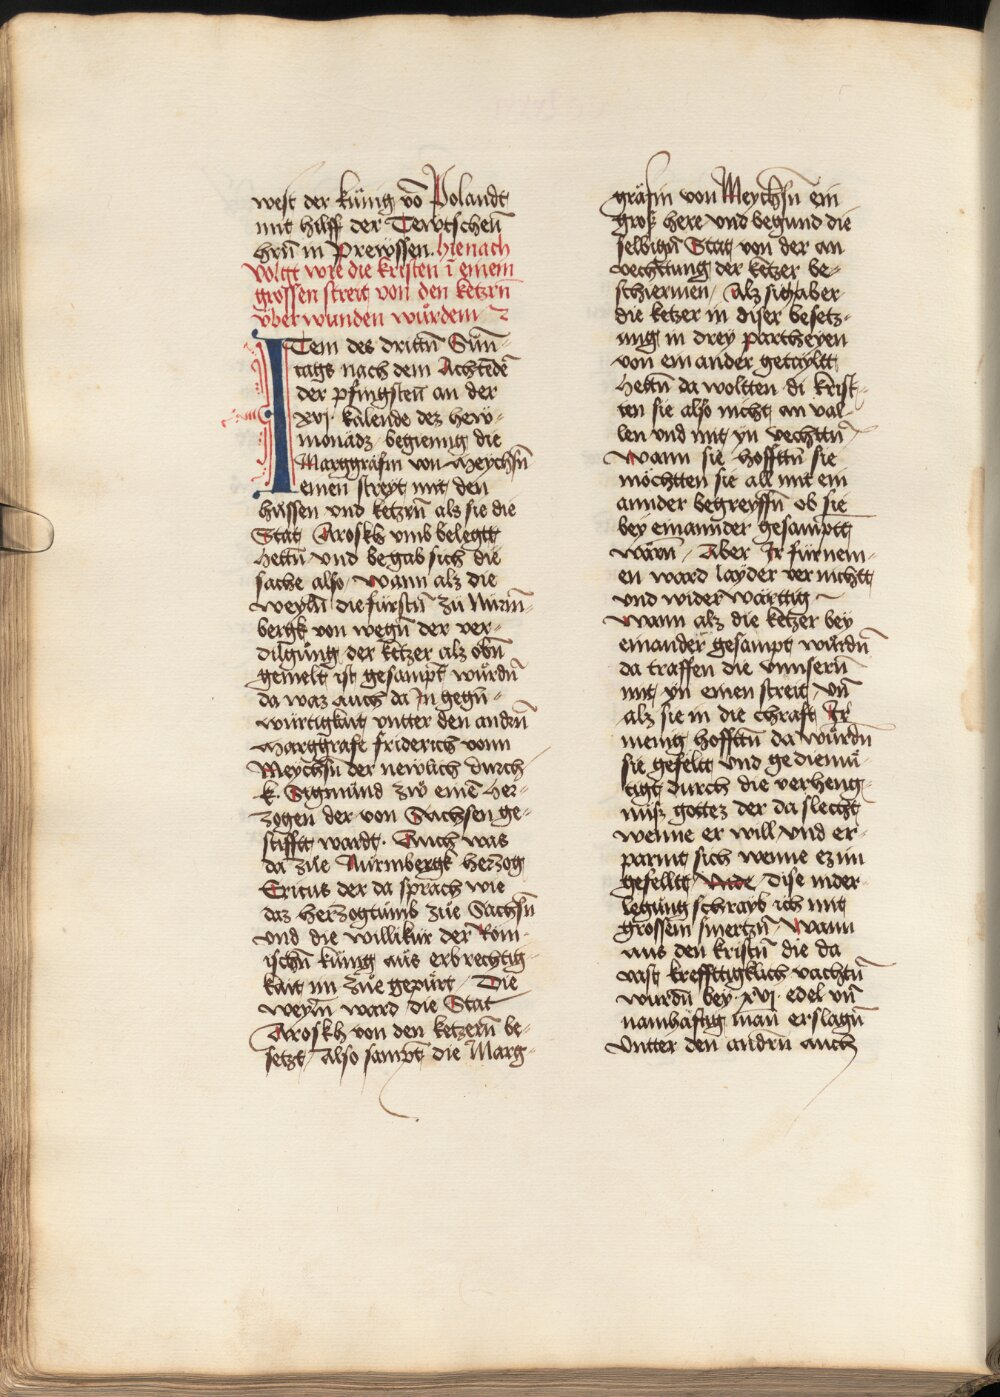 west der künig vō Polandt
mit hilff der Tewtscheñ
hrñ in Prewssen. hienach
volgt wie die kristen ī einem
grossen streit von den ketzrñ
vberwunden würdem
ITem des drittñ Sün-
tags nach dem Achtēdē
der pfingsteñ an der
xvj. kalende dez hew-
monadz begieng die
Marggräfin von Meychsñ
einen streyt mit den
hussen vnd ketzrñ als sie die
Stat Aroskh vmb belegtt
hettñ vnd begab sich die
sache also, wann alz die
weylñ die fürstñ zü Nürm-
bergk von wegñ der ver-
dilgüng der ketzer alz obñ
gemelt ist gesampt würdñ
da waz auch da jn gegñ-
würtigkait vntter den andrñ
Marggrafe friderich vonn
Meychsñ der newlich durch
k. Sigmünd zw einē her-
zogen der von Sachsen ge-
stifftt wardt. Auch was
da züe Nürmbergk herzog
Ericus der da sprach wie
daz herzogtümb züe Sachsñ
vnd die willikür der Röm-
ischñ künig aüs erbrechtig-
kait im züe gepürt, Die
weylñ ward die Stat
Aroskh von den ketzerñ be-
setzt, Also sampt die Marg-
gräfin von Meychsñ ein
groß here vnd begund die
selbigñ Stat von der an
vechttung der ketzer be-
schiermen, Alz sich aber
die ketzer in diser besetz-
ung in drey partheyen
von ein ander getayltt
hettñ da woltten di krist-
ten sie also nicht an val-
len vnd mit yn vechttñ
Wann sie hofftñ sie
möchtten sie all mit ein
annder begreyffñ ob sie
bey einannder gesamptt
wärñ, Aber Ir fürnem-
en ward layder vernichtt
vnd widerwärttig
Wann alz die ketzer bey
einander gesampt würdñ
da traffen die vnnserñ
mit yn einen streit, vñ
alz sie in die chraft Ir
menig hofftñ da würdñ
sie gefeltt vnd gediemü-
tigt durch die verheng-
nüß gottez der da slecht
wenne er will vnd er-
parmt sich wenne ez im
gefelltt, Dise nider-
legüng schrayb ich mit
grossem smertzñ, Wann
aus den kristñ die da
vast krefftigklich vachtñ
wurdñ bey xvj. edel vñ
namhäftig man erslagñ
Vntter den andrñ auch